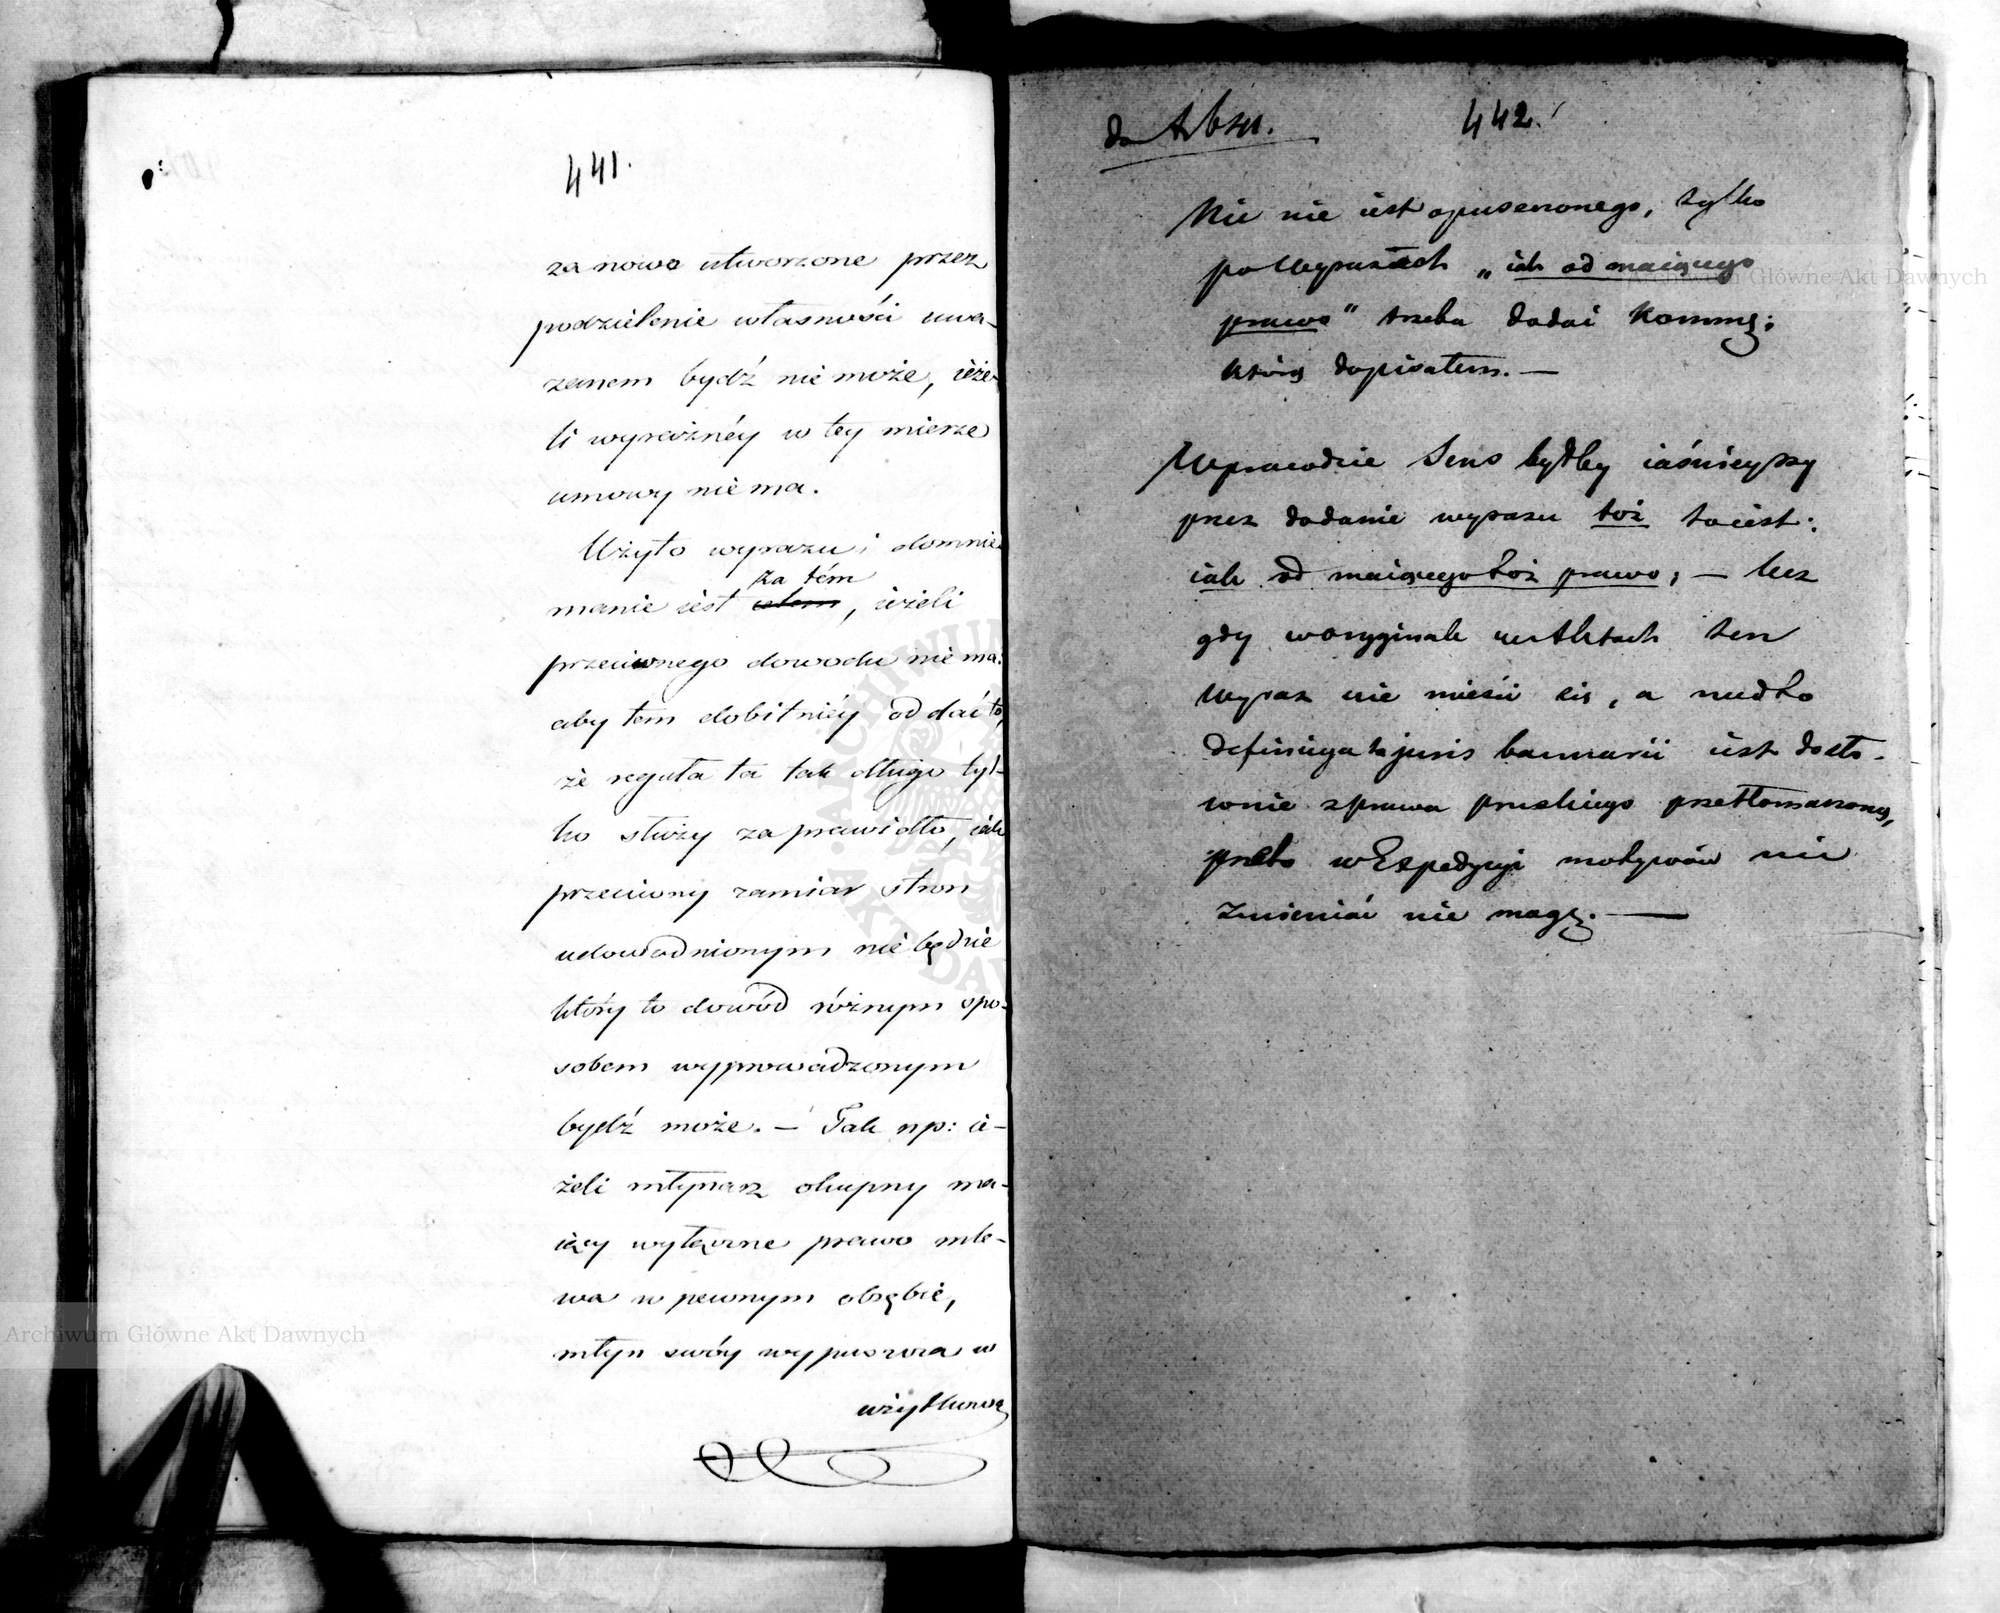 441.
za nowo utworzone przez
podzielenie własności uwa-
żanem bydź nie może, ieże-
li wyraźnéy w tey mierze
umowy niema.
Użyto wyrazu i domnie
za tém
manie iest celem, ieżeli
przeciwnego dowodu niema:
aby tem dobitniéy oddać to,
że reguła ta tak długo tyl-
ko służy za prawidło, iak
przeciwny zamiar stron
udowodnionym nie będzie
który to dowód różnym spo-
sobem wyprowadzonym
bydź może. — Tak np: ie-
żeli młynarz okupny ma-
iący wyłączne prawo mle-
wa w pewnym obrębie,
młyn swóy wypuszcza w
użytkową
442.
Nic nie iest opuszczonego, tylko
po wyrazach „iak od maiącego
prawo" trzeba dodać Kommę;
którą dopisałem. —
Wprawdzie Sens byłby iaśnieyszy
przez dodanie wyrazu toż to iest:
iak od maiącego toż prawo; — lecz
gdy w oryginale ten
wyraz nie mieści się, a
definicya ta juris bannarii iest dosło-
wnie z prawa pruskiego przetłomaczoną,
przeto w Expedycyi motywów nic
zmieniać nie mogę. —
Archiwum Główne Akt Dawnych
Archiwum Główne Akt Dawnych